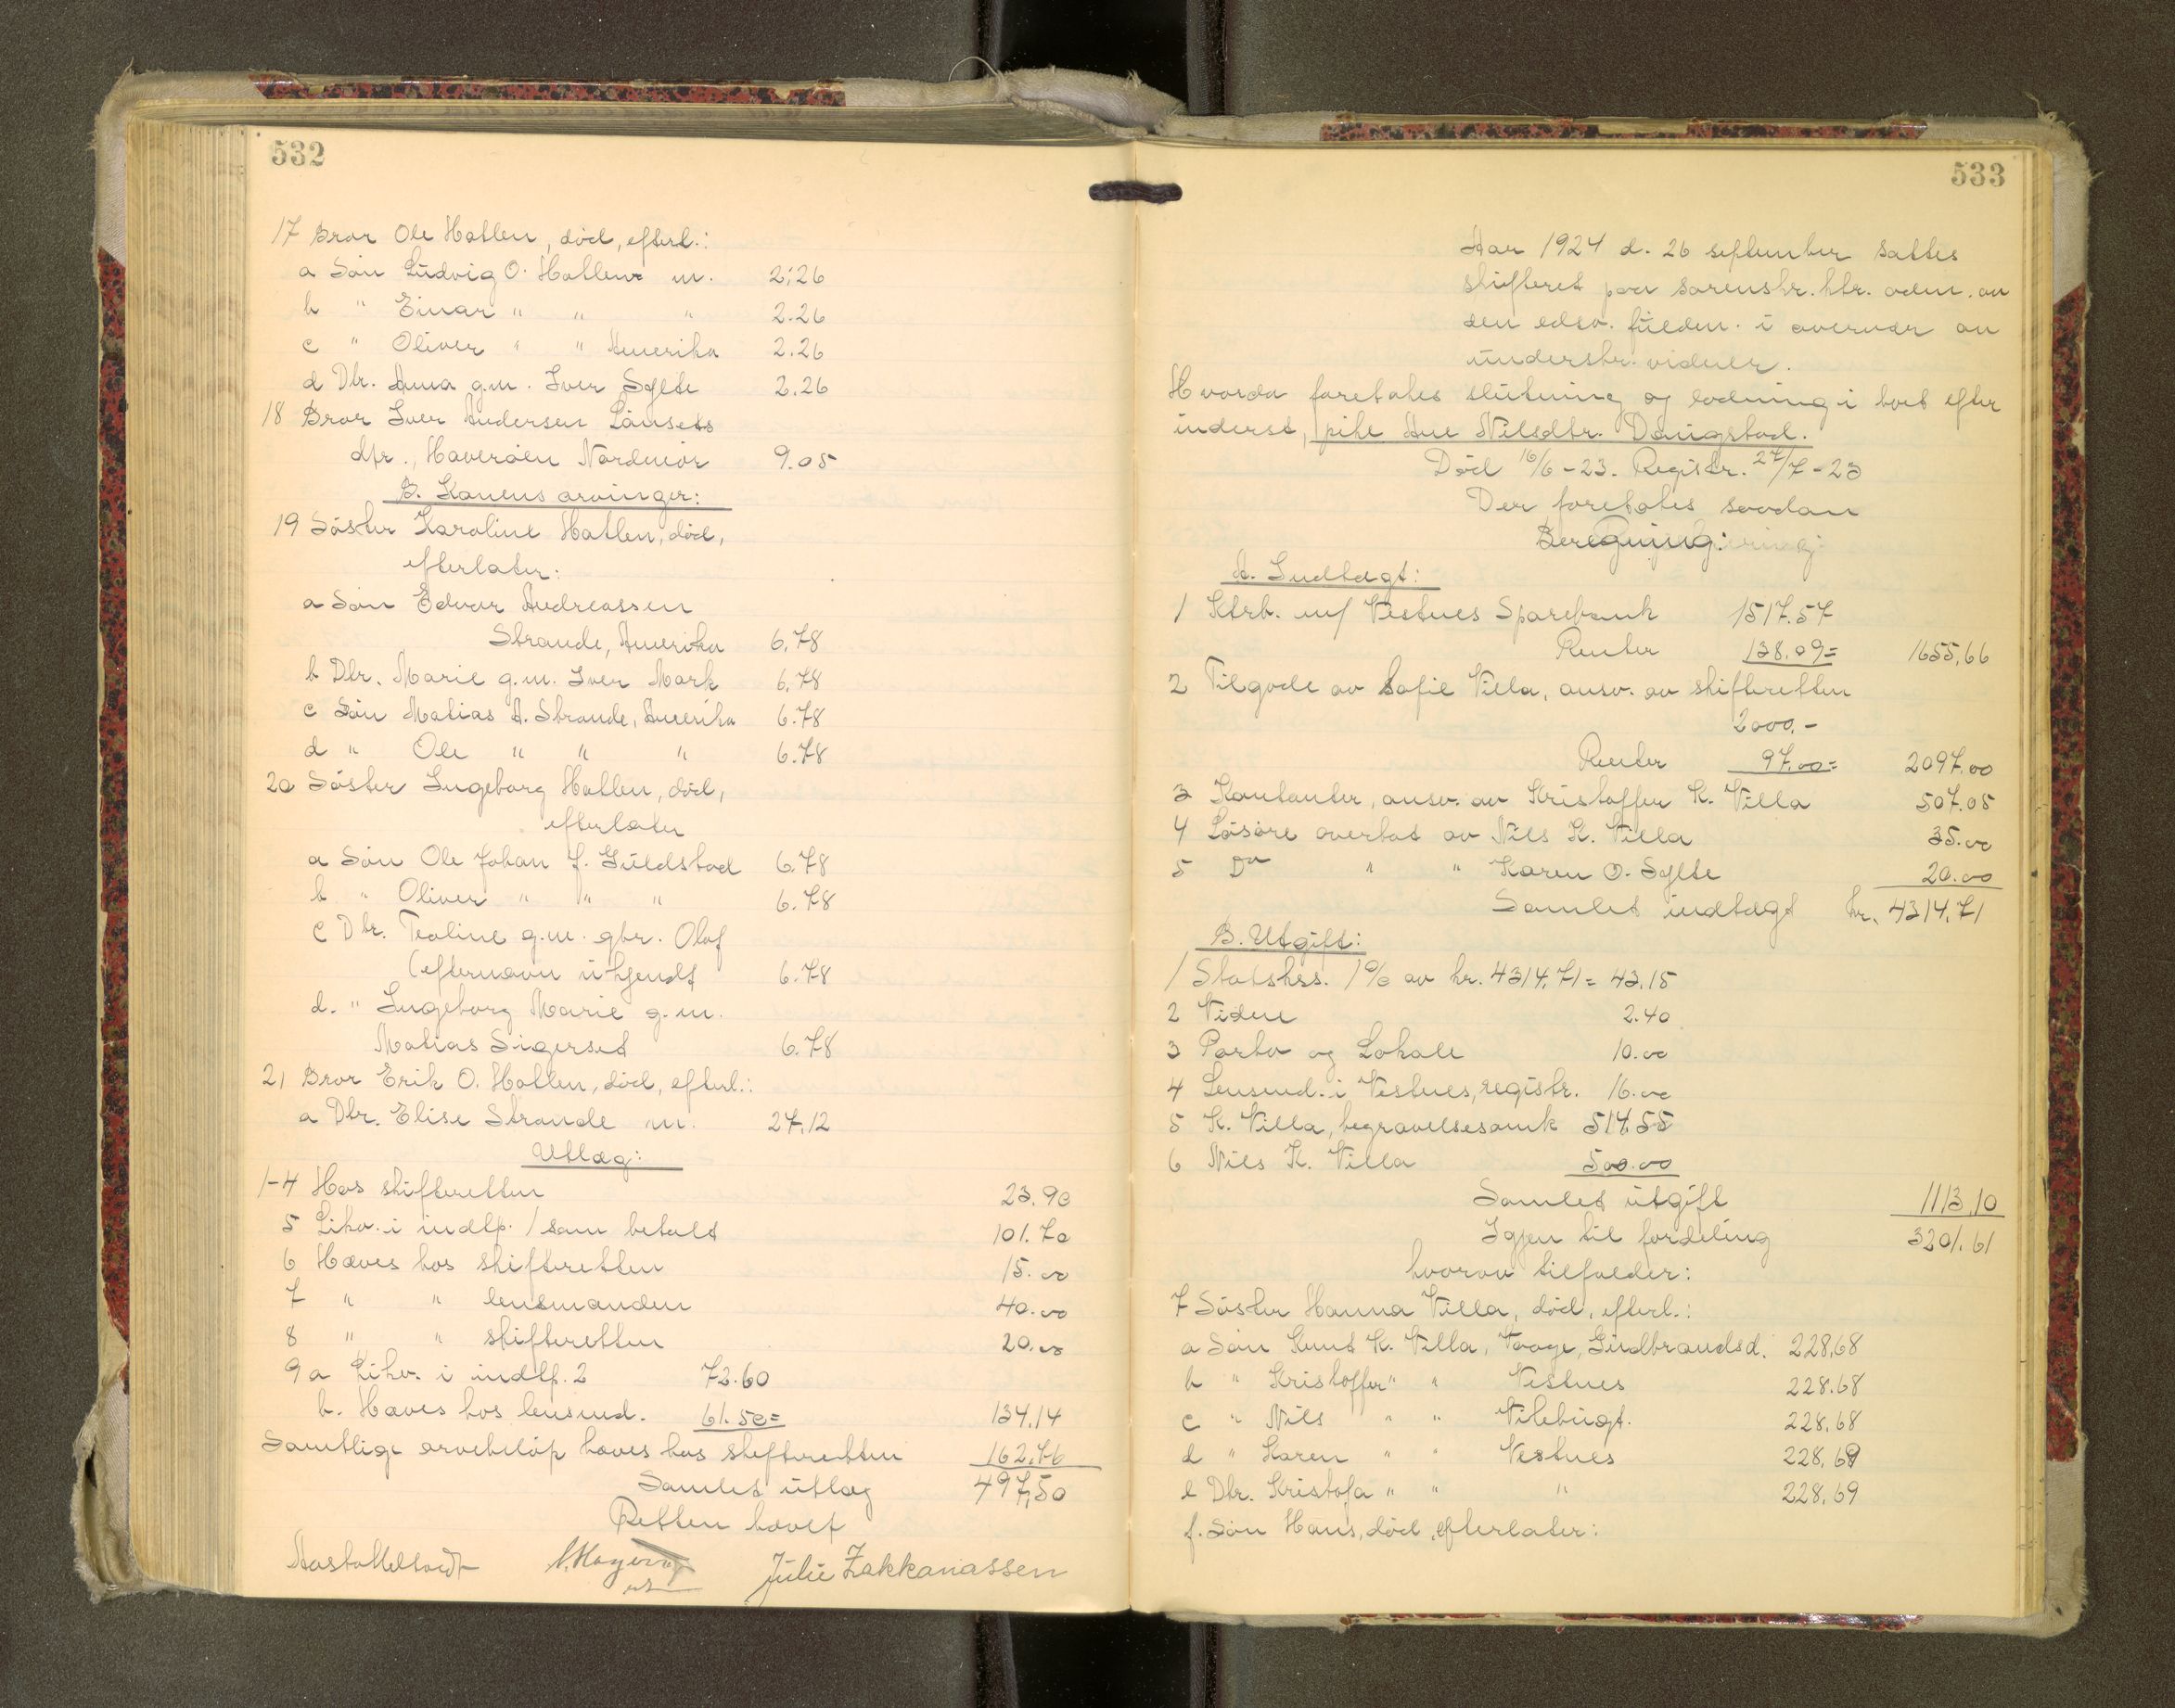 532
17 Bror Ole Hatlen, død, efterl.:
a Søn Ludvig O. Hatlen m. 2.26
b " Einar " " " 2.26
c " Oliver " " Amerika 2.26
d Dtr. Anna g.m. Iver Sylte 2.26
18 Bror Iver Andersen Lønset
dpr., Haverøen Nordmør 9.05
B. Konens arvinger:
19 Søster Karoline Hatlen, død,
efterlater:
a Søn Edvar Andreassen
Strande, Amerika 6.78
b Dtr. Marie g.m. Iver Mork 6.78
c Søn Matias A. Strande, Amerika 6.78
d " Ole " " " 6.78
20 Søster Ingeborg Hatlen, død,
efterlater
a Søn Ole Johan J. Guldstad 6.78
b " Oliver " " " 6.78
c Dtr. Teoline g.m. gbr. Olaf
(efternavn ukjendt 6.78
d. " Ingeborg Marie g.m.
Matias Sigerset 6.78
21 Bror Erik O. Hatlen, død, efterl.:
a Dtr. Elise Strande m. 27.12
Utlæg:
1-4 Hos skifteretten 23.90
5 Likv. i indtp. 1 som betalt 101.70
6 Hæves hos skifteretten 15.00
7 " " lensmanden 40.00
8 " " skifteretten 20.00
9 a Likv. i indtp. 2 72.60
b. Hæves hos lensmd. 61.50= 134.14
Samtlige arvebeløp hæves hos skifteretten 162.76
Samlet utlæg 497,50
Retten hævet
Julie Zakkariassen
533
Aar 1924 d. 26 september sattes
skifteret paa sorenskr. ktr. adm. av
den edsv. fuldm. i overvær av
underskr. vidner.
Hvorda foretokes slutning og lodning i boet efter
inderst, pike Ane Nilsdtr. Daugstad.
Død 16/6-23. Registr. 27/7-23
Der foretokes saadan
Beregning:
A. Indtægt:
1 Ktrb. m/ Vestnes Sparebank 1517.57
Renter 138.09= 1655,66
2 Tilgode av Sofie Villa, ansv. av skifteretten
2000.-
Renter 97.00= 2097.00
3 Kontanter, ansv. av Kristoffer K. Villa 507.05
4 Løsøre overtat av Nils K. Villa 35.00
5 Do " " Karen O. Sylte 20.00
Samlet indtægt kr. 4314.71
B. Utgift:
1 Statskss. 1% av kr. 4314.71= 43.15
2 Vidne 2.40
3 Porto og Lokale 10.00
4 Lensmd. i Vestnes, registr. 16.00
5 K. Villa, begravelsesomk 514.55
6 Nils K. Villa 500.00
Samlet utgift 1113.10
Igjen til fordeling 3201.61
hvorav tilfalder:
7 Søster Hanna Villa, død, efterl.:
a Søn Knut K. Villa, Vaage, Gudbrandsd. 228,68
b " Kristoffer " " Vestnes 228.68
c " Nils " " Vikebugt. 228,68
d " Karen " " Vestnes 228,69
e Dtr. Kristofa " " " 228,69
f. Søn Hans, død, efterlater: